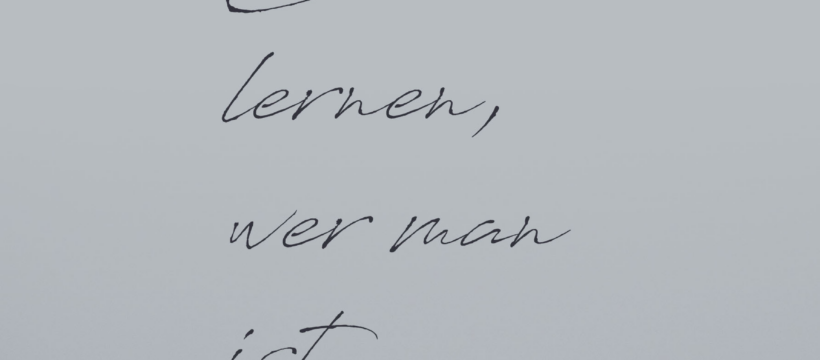 lernen,
wer man
ist